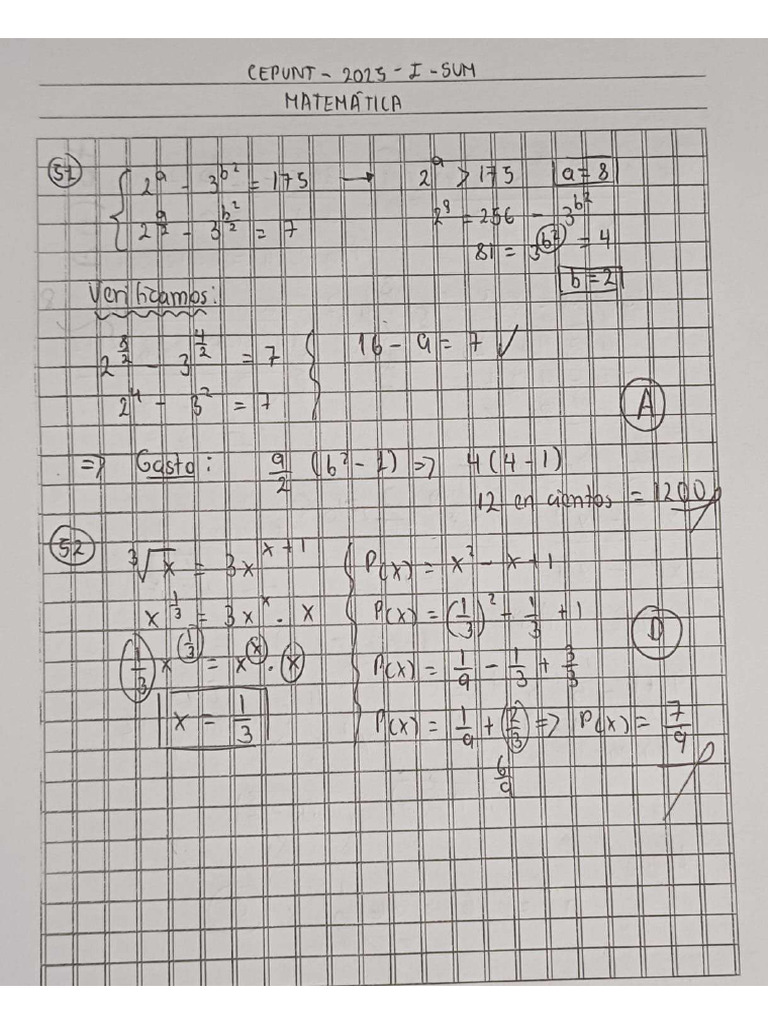 CEPUNT - 2025 - I - SUM
MATEMÁTICA
51
2^a - 3^{b^2} = 175 → 2^a > 175 a = 8
2^{a/2} - 3^{b^2/2} = 7 2^8 = 256 - 3^{b^2}
81 = 3^{b^2} = 4
b = 2
Verificamos:
2^{8/2} - 3^{4/2} = 7 } 16 - 9 = 7 ✓
2^4 - 3^2 = 7
A
=> Gasto: a/2 (b^2 - 1) => 4(4-1)
12 en cientos = 1200
52
∛x = 3x^{x+1}
x^{1/3} = 3x^x · x
1/3 x^{1/3} = x^x · x
x = 1/3
P(x) = x^2 - x + 1
P(x) = (1/3)^2 - 1/3 + 1
D
P(x) = 1/9 - 1/3 + 3/3
P(x) = 1/9 + 2/3 => P(x) = 7/9
6/9